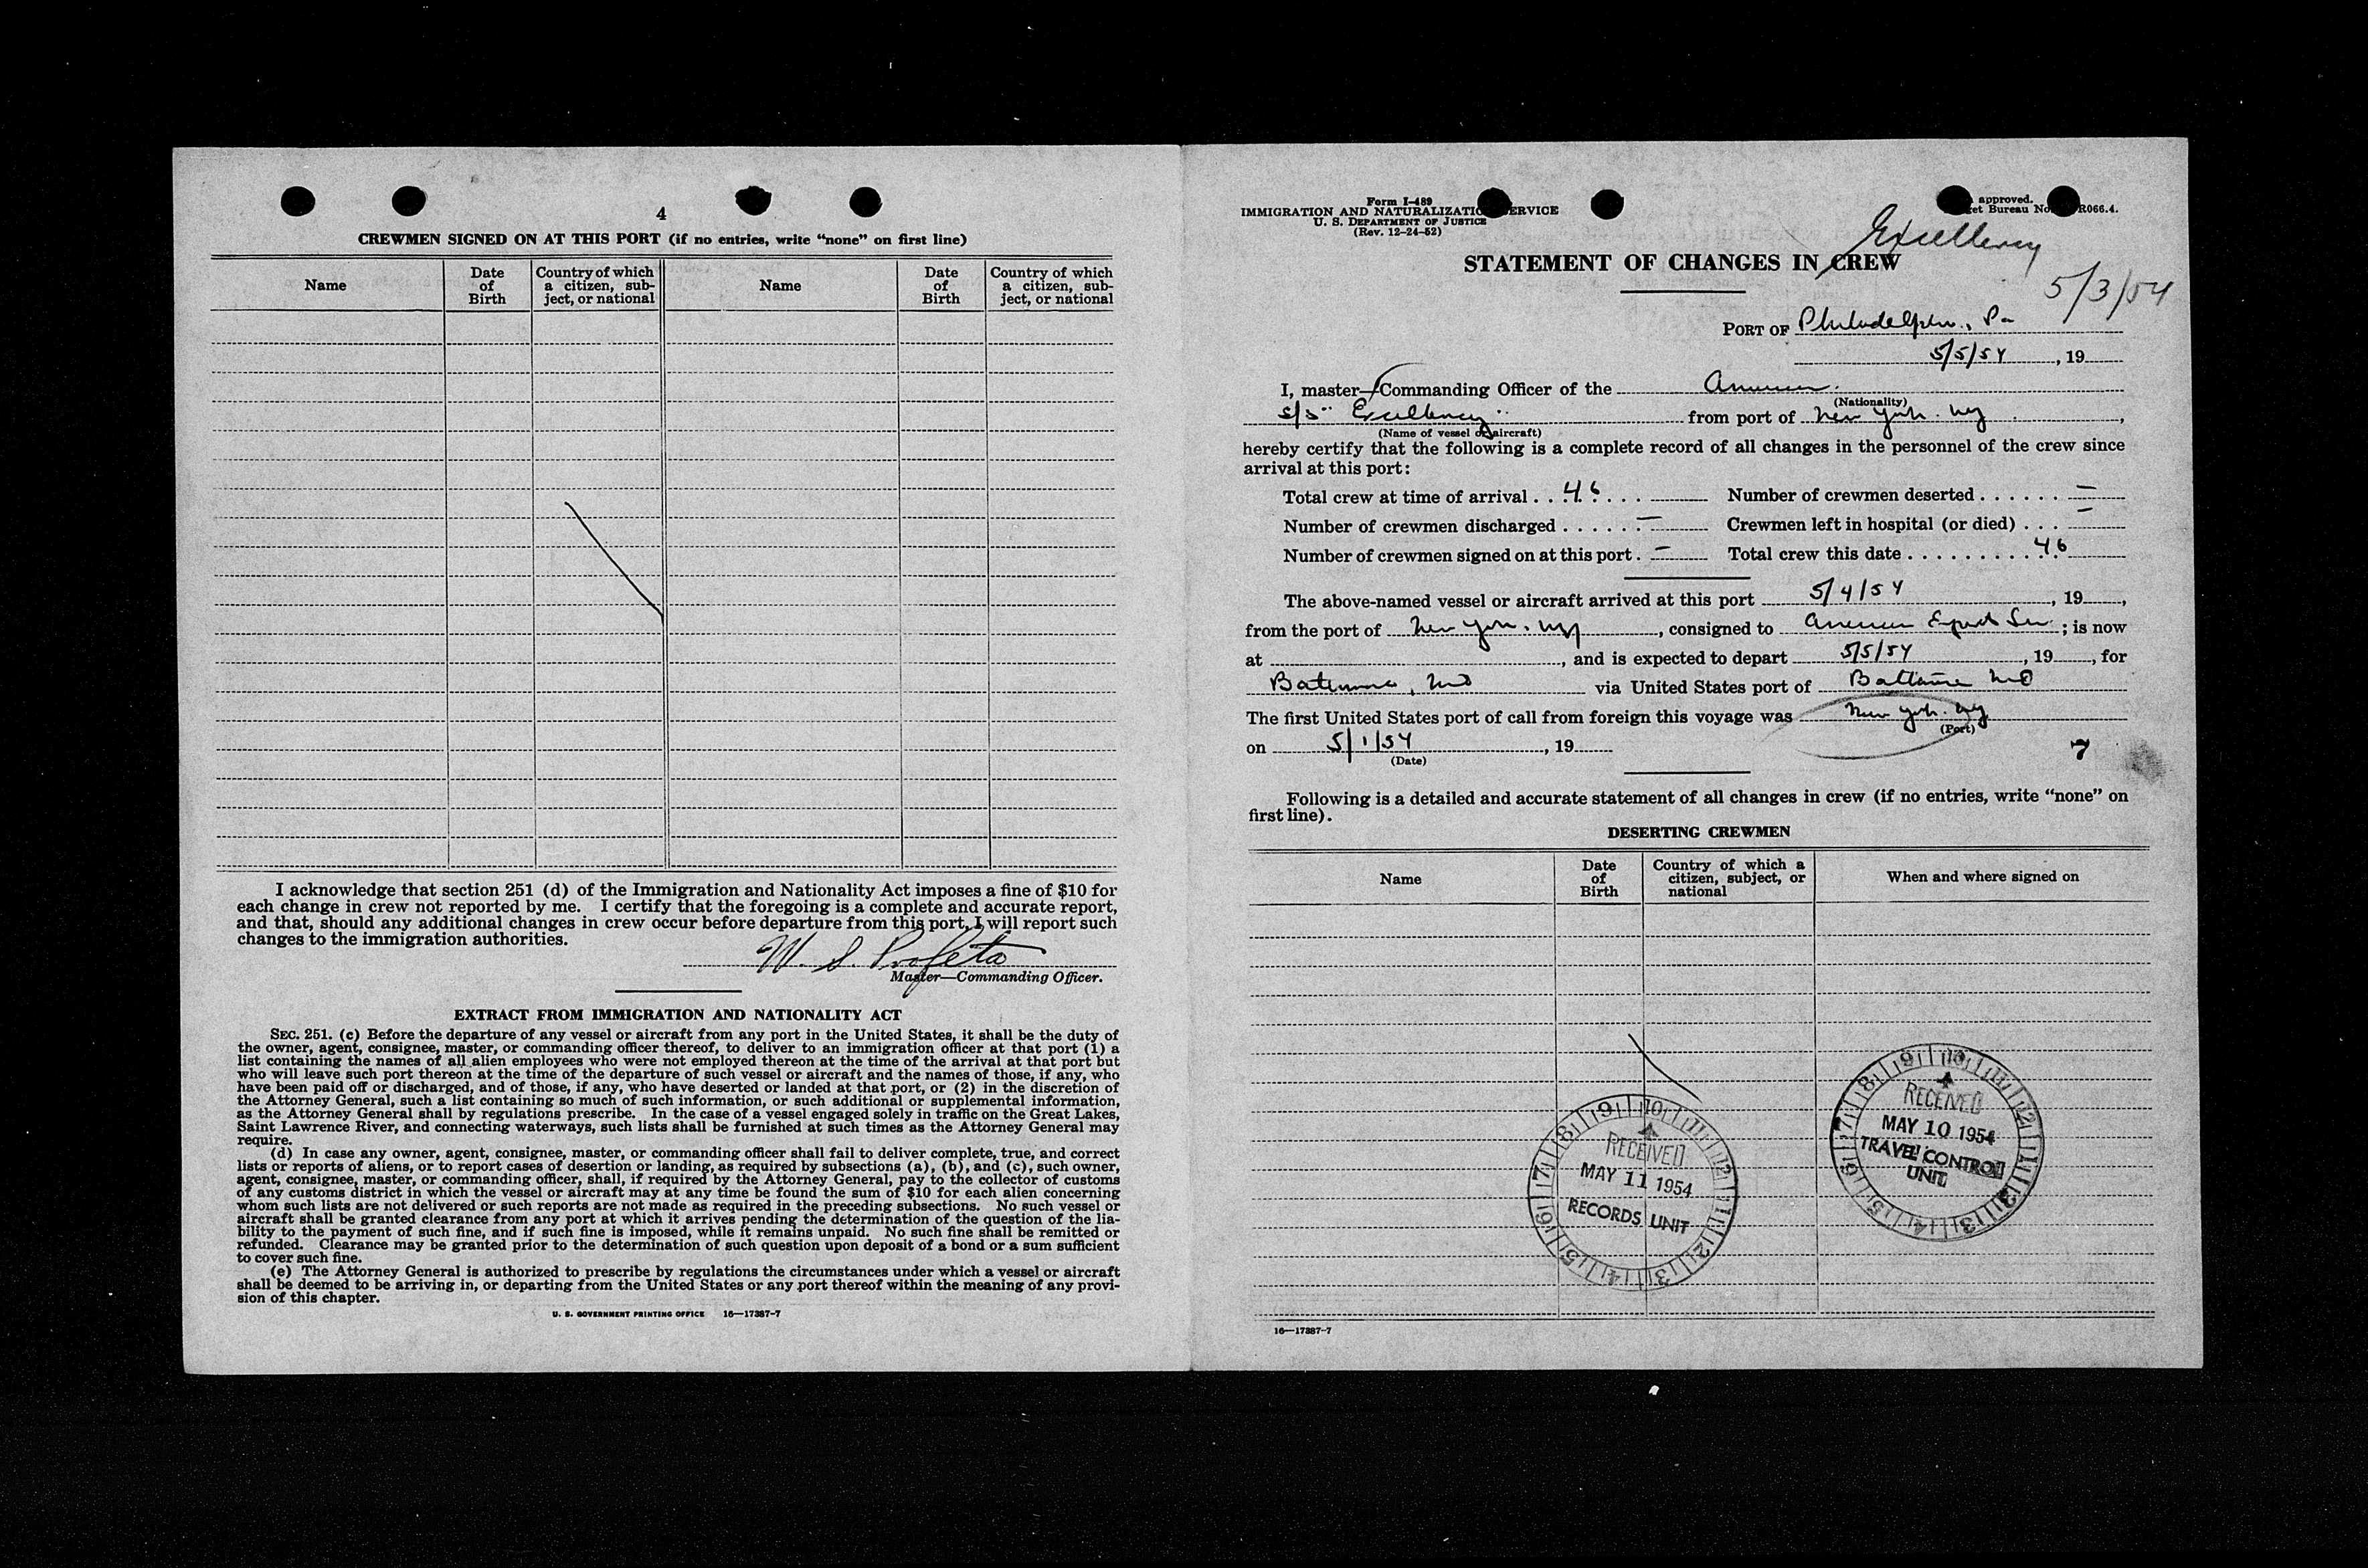 4
CREWMEN SIGNED ON AT THIS PORT (if no entries, write “none” on first line)
Name
Date of Birth
Country of which a citizen, subject, or national
Name
Date of Birth
Country of which a citizen, subject, or national
I acknowledge that section 251 (d) of the Immigration and Nationality Act imposes a fine of $10 for
each change in crew not reported by me. I certify that the foregoing is a complete and accurate report,
and that, should any additional changes in crew occur before departure from this port, I will report such
changes to the immigration authorities.
W. S. Profeta
Master—Commanding Officer.
EXTRACT FROM IMMIGRATION AND NATIONALITY ACT
SEC. 251. (c) Before the departure of any vessel or aircraft from any port in the United States, it shall be the duty of
the owner, agent, consignee, master, or commanding officer thereof, to deliver to an immigration officer at that port (1) a
list containing the names of all alien employees who were not employed thereon at the time of the arrival at that port but
who will leave such port thereon at the time of the departure of such vessel or aircraft and the names of those, if any, who
have been paid off or discharged, and of those, if any, who have deserted or landed at that port, or (2) in the discretion of
the Attorney General, such a list containing so much of such information, or such additional or supplemental information,
as the Attorney General shall by regulations prescribe. In the case of a vessel engaged solely in traffic on the Great Lakes,
Saint Lawrence River, and connecting waterways, such lists shall be furnished at such times as the Attorney General may
require.
(d) In case any owner, agent, consignee, master, or commanding officer shall fail to deliver complete, true, and correct
lists or reports of aliens, or to report cases of desertion or landing, as required by subsections (a), (b), and (c), such owner,
agent, consignee, master, or commanding officer, shall, if required by the Attorney General, pay to the collector of customs
of any customs district in which the vessel or aircraft may at any time be found the sum of $10 for each alien concerning
whom such lists are not delivered or such reports are not made as required in the preceding subsections. No such vessel or
aircraft shall be granted clearance from any port at which it arrives pending the determination of the question of the lia-
bility to the payment of such fine, and if such fine is imposed, while it remains unpaid. No such fine shall be remitted or
refunded. Clearance may be granted prior to the determination of such question upon deposit of a bond or a sum sufficient
to cover such fine.
(e) The Attorney General is authorized to prescribe by regulations the circumstances under which a vessel or aircraft
shall be deemed to be arriving in, or departing from the United States or any port thereof within the meaning of any provi-
sion of this chapter.
U. S. GOVERNMENT PRINTING OFFICE 16—17387-7
Form I-489
IMMIGRATION AND NATURALIZATION SERVICE
U. S. DEPARTMENT OF JUSTICE
(Rev. 12-24-52)
approved.
Bureau No. R066.4.
Excellency
STATEMENT OF CHANGES IN CREW
5/3/54
PORT OF Philadelphia, Pa
5/5/54, 19
I, master—Commanding Officer of the American
(Nationality)
S/S "Excellency" from port of New York. NY,
(Name of vessel or aircraft)
hereby certify that the following is a complete record of all changes in the personnel of the crew since
arrival at this port:
Total crew at time of arrival . . 46 . . . Number of crewmen deserted . . . . . . —
Number of crewmen discharged . . . . . . — Crewmen left in hospital (or died) . . . —
Number of crewmen signed on at this port . — Total crew this date . . . . . . . . . 46
The above-named vessel or aircraft arrived at this port 5/4/54, 19,
from the port of New York. NY, consigned to American Export Lin; is now
at , and is expected to depart 5/5/54, 19, for
Batimore, MD via United States port of Baltimore MD
The first United States port of call from foreign this voyage was New York. NY
(Port)
on 5/1/54, 19
(Date)
7
Following is a detailed and accurate statement of all changes in crew (if no entries, write “none” on
first line).
DESERTING CREWMEN
Name
Date of Birth
Country of which a citizen, subject, or national
When and where signed on
RECEIVED
MAY 11 1954
RECORDS UNIT
RECEIVED
MAY 10 1954
TRAVEL CONTROL
UNIT
16—17387-7